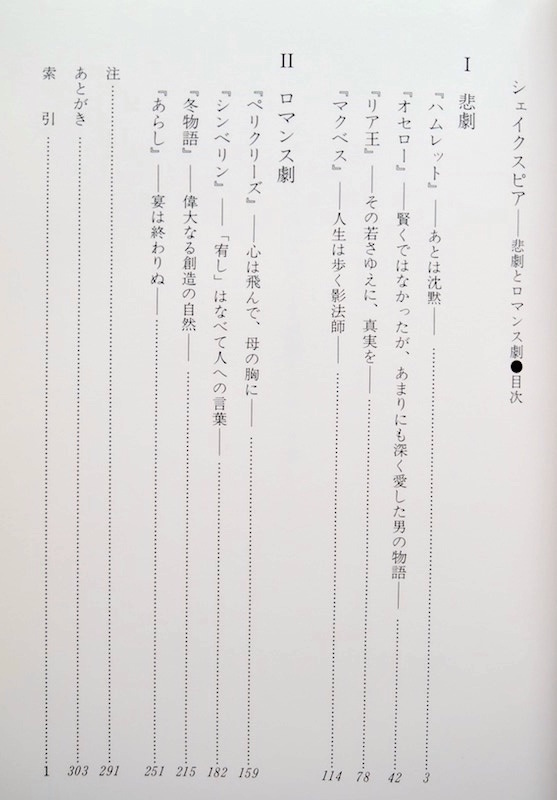 シェイクスピア——悲劇とロマンス劇●目次
I 悲劇
『ハムレット』——あとは沈黙——……3
『オセロー』——賢くではなかったが、あまりにも深く愛した男の物語——……42
『リア王』——その若さゆえに、真実を——……78
『マクベス』——人生は歩く影法師——……114
II ロマンス劇
『ペリクリーズ』——心は飛んで、母の胸に——……159
『シンベリン』——「宥し」はなべて人への言葉——……182
『冬物語』——偉大なる創造の自然——……215
『あらし』——宴は終わりぬ——……251
注……291
あとがき……303
索引……1